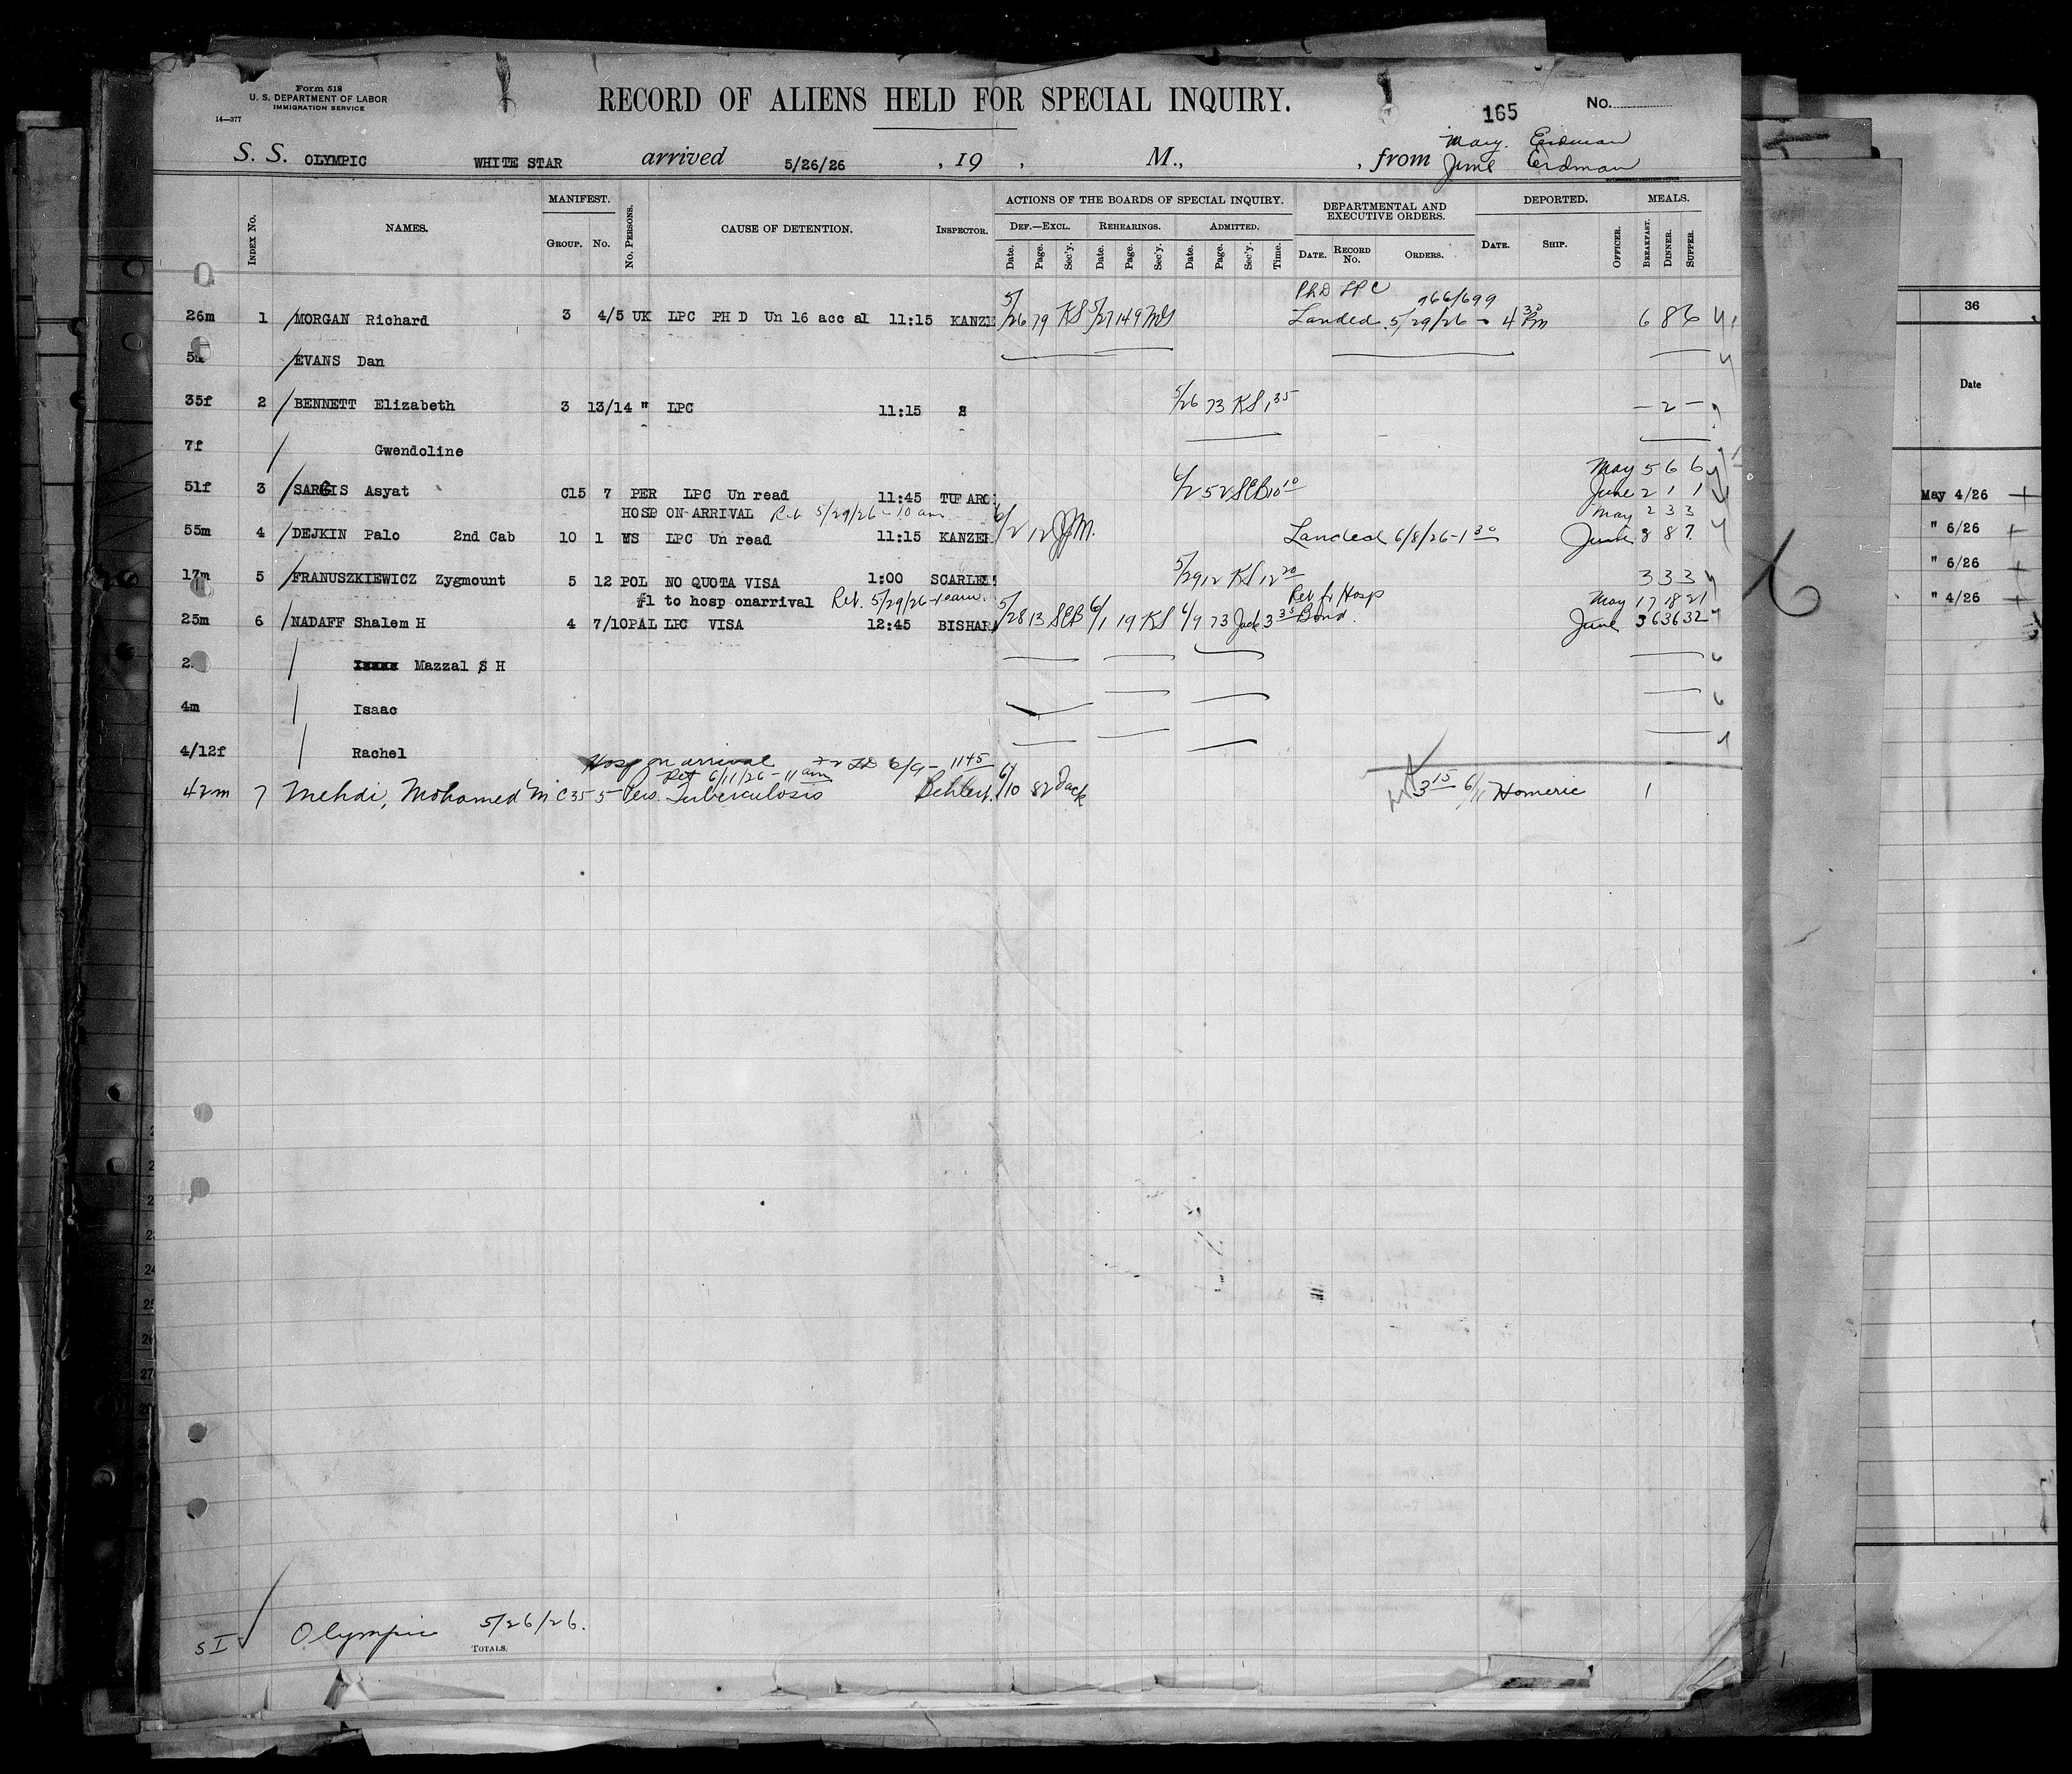 Form 518
U. S. DEPARTMENT OF LABOR
IMMIGRATION SERVICE
14—377
RECORD OF ALIENS HELD FOR SPECIAL INQUIRY.
165 No.
S. S. OLYMPIC WHITE STAR arrived 5/26/26 , 19 , M., , from Mary. Erdman
June Erdman
INDEX No. NAMES. MANIFEST. GROUP. No. No. PERSONS. CAUSE OF DETENTION. INSPECTOR.
ACTIONS OF THE BOARDS OF SPECIAL INQUIRY. DEF.—EXCL. Date. Page. Sec'y. REHEARINGS. Date. Page. Sec'y. ADMITTED. Date. Page. Sec'y. Time.
DEPARTMENTAL AND EXECUTIVE ORDERS. DATE. RECORD No. ORDERS. DEPORTED. DATE. SHIP. OFFICER. MEALS. BREAKFAST. DINNER. SUPPER.
PhD LPC 966/699
26m 1 /MORGAN Richard 3 4/5 UK LPC PH D Un 16 acc al 11:15 KANZE 5/26 79 KS 5/27 149 MS Landed 5/29/26 - 4 30 Pm 6 8 6
/EVANS Dan
35f 2 /BENNETT Elizabeth 3 13/14 " LPC 11:15 5/26 73 KS 1 35 — 2 —
7f / Gwendoline
May 5 6 6
51f 3 /SARGIS Asyat C15 7 PER LPC Un read 11:45 TUFARO 6/2 52 SEB 10 10 June 2 1 1
HOSP ON ARRIVAL Ret. 5/29/26 - 10 am May 2 3 3
55m 4 /DEJKIN Palo 2nd Cab 10 1 WS LPC Un read 11:15 KANZER 6/2 12 JJM. Landed 6/8/26 - 1 30 June 8 8 7
17m 5 /FRANUSZKIEWICZ Zygmount 5 12 POL NO QUOTA VISA 1:00 SCARLE 5/29 12 KS 12 20 3 3 3
#1 to hosp onarrival Ret. 5/29/26 - 10 am. Ret. fr Hosp May 17 18 21
25m 6 /NADAFF Shalem H 4 7/10 PAL LPC VISA 12:45 BISHARA 5/28 13 SEB 6/1 19 KS 6/9 73 Jack 3 35 Bond. June 36 36 32
/ Mazzal S H
4m / Isaac
4/12f / Rachel
Hosp on arrival 6/9 - 1145
Ret 6/11/26 - 11 am
42m 7 Mehdi, Mohamed M C35 5 Pers. Tuberculosis Behlert. 6/10 82 Jack 3 15 6/11 Homeric 1
SI Olympic 5/26/26.
TOTALS.
36
Date
May 4/26
" 6/26
" 6/26
" 4/26